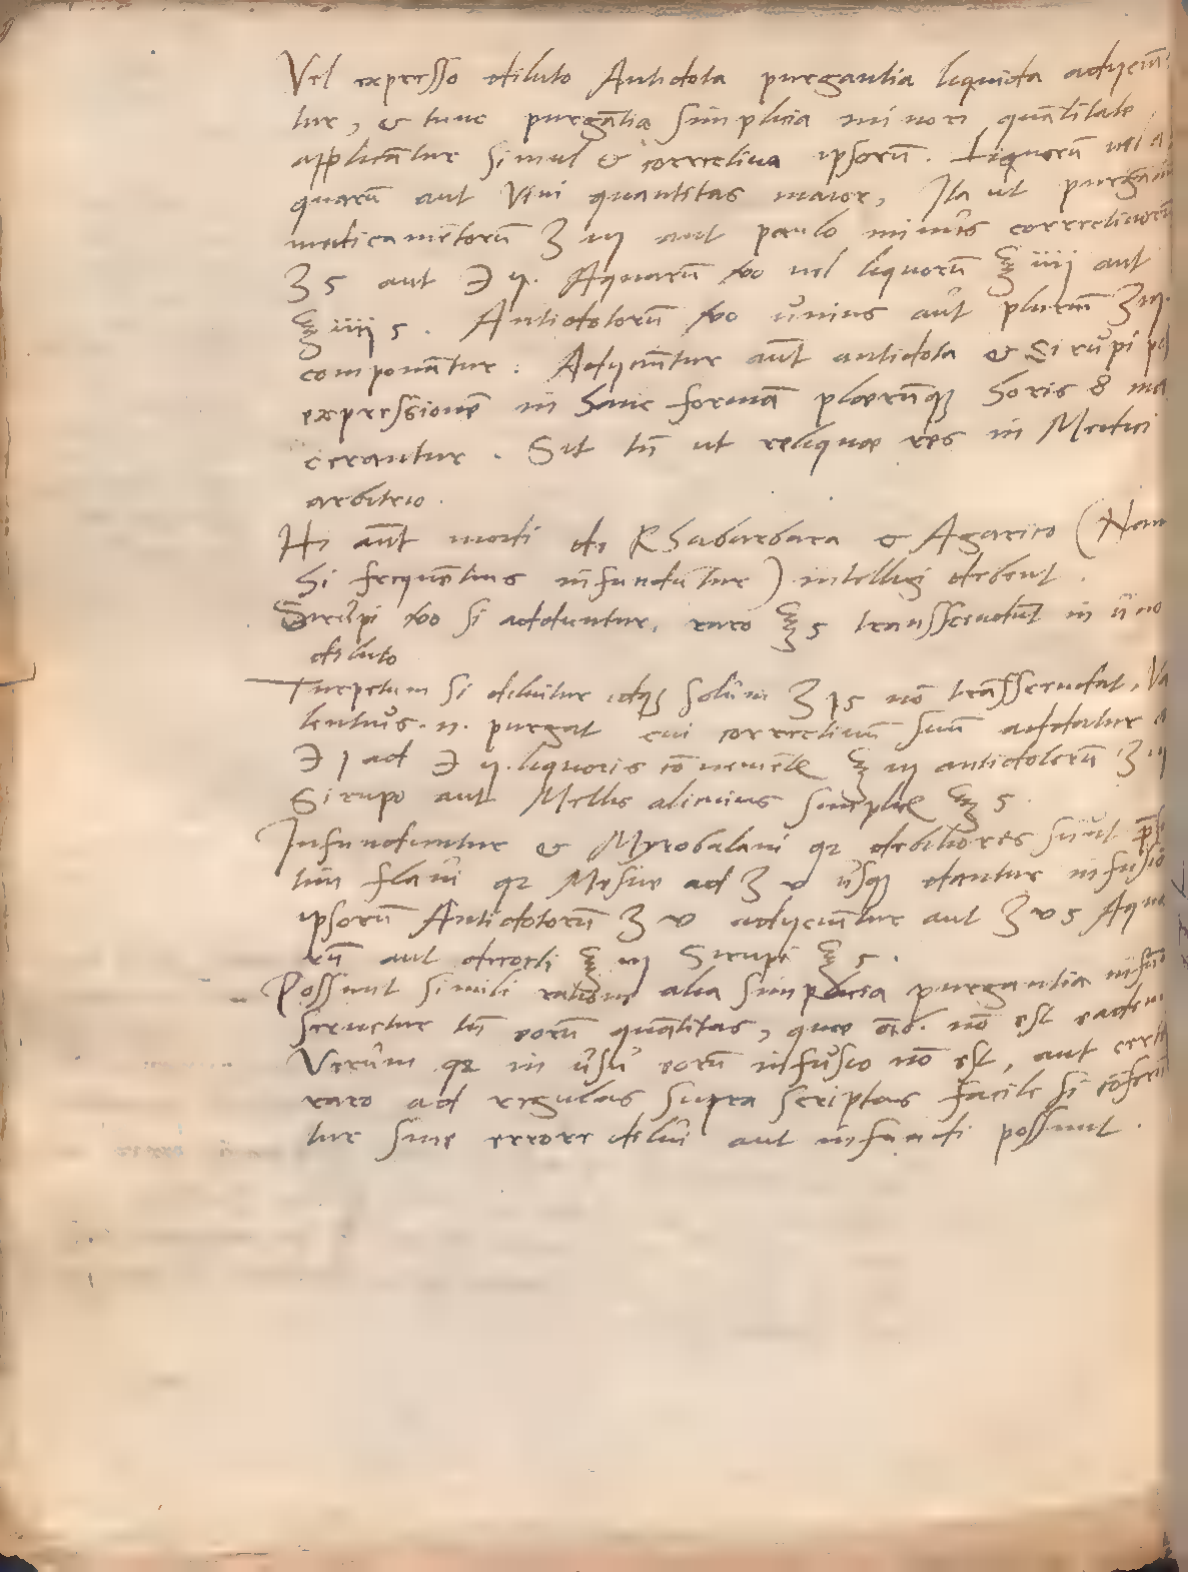 Vel expresso diluto Antidota purgantia liquida adijciūtur
tur, & tunc purgātia simplicia minori quātitate
applicātur simul & correctiua ipsorū. Liquorū vel a
quarū aut Vini quantitas maior, Ita ut purgātiū
medicamētorū ʒ iij aut paulo minus correctiuorū
ʒ s aut ℈ ij. Aquarū ṽo vel liquorū ℥ iiij aut
℥ iiij s. Antidotorū ṽo unius aut plurium ʒ iij.
componātur: Adijciūtur aūt antidota & Sirupi
expressionē in hanc formā plærūq̃ horis 8 ma
cerantur. Sit tñ ut reliquæ res in Medici
arbitrio.
Hi aūt modi de Rhabarbara & Agarico (Nam
hi frequētius infundūtur) intelligi debent.
Sirupi ṽo si adduntur, raro ℥ s transscendūt in uno
diluto
Turpetum si diluitur idq̃ solum ʒ js nō trāsscendat, Va
lentius .n. purgat cui correctiuū suū addatur a
℈ j ad ℈ ij. liquoris cōueniētis ℥ iij antidotorū ʒ iij
Sirupo aut Mellis alicuius simplicis ℥ s.
Infunduntur & Myrobalani qꝫ debiliores sunt
tim flaui qꝫ Mesue ad ʒ v usq̃ dantur infusio
ipsorū Antidotorū ʒ v adijciūtur aut ʒ v s Aqua
rū aut decocti ℥ iij Sirupi ℥ s.
Possunt simili ratione alia simplicia purgantia
seruetur tñ eorū quātitas, quæ oīb. nō est eadem
Verum qꝫ in usu eorū infusio nō est, aut
raro ad regulas supra scriptas facile si cōferū
tur sine errore dilui aut infundi possunt.